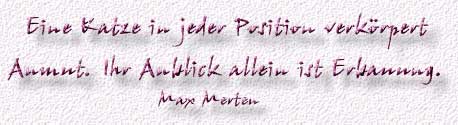 Eine Katze in jeder Position verkörpert
Anmut. Ihr Anblick allein ist Erbauung.
Max Merten